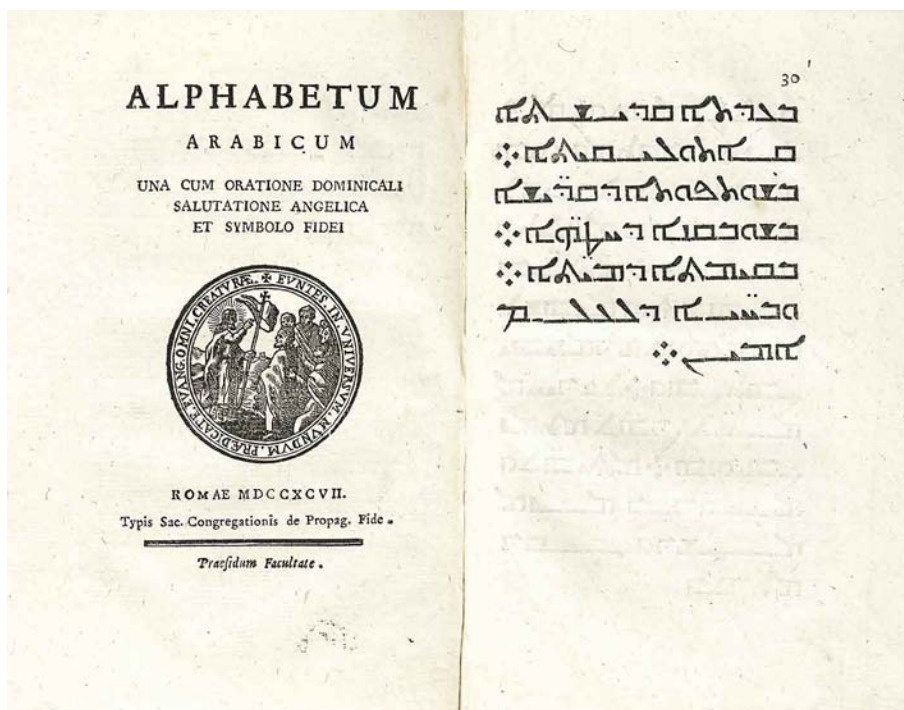 ALPHABETUM
ARABICUM
UNA CUM ORATIONE DOMINICALI
SALUTATIONE ANGELICA
ET SYMBOLO FIDEI
EVNTES IN VNIVERSVM MVNDVM PRÆDICATE EVANG. OMNI CREATVRÆ.
ROMAE MDCCXCVII.
Typis Sac. Congregationis de Propag. Fide.
Præsidum Facultate.
30
ܒܥܕܬܐ ܩܕܝܫܬܐ
ܩܬܘܠܝܩܝܬܐ ܀
ܒܫܘܬܦܘܬܐ ܕܩܕ̈ܝܫܐ
ܒܫܘܒܩܢܐ ܕܚܛܗ̈ܐ ܀
ܒܩܝܡܬܐ ܕܡܝ̈ܬܐ ܀
ܘܒܚ̈ܝܐ ܕܠܥܠܡ
ܐܡܝܢ ܀